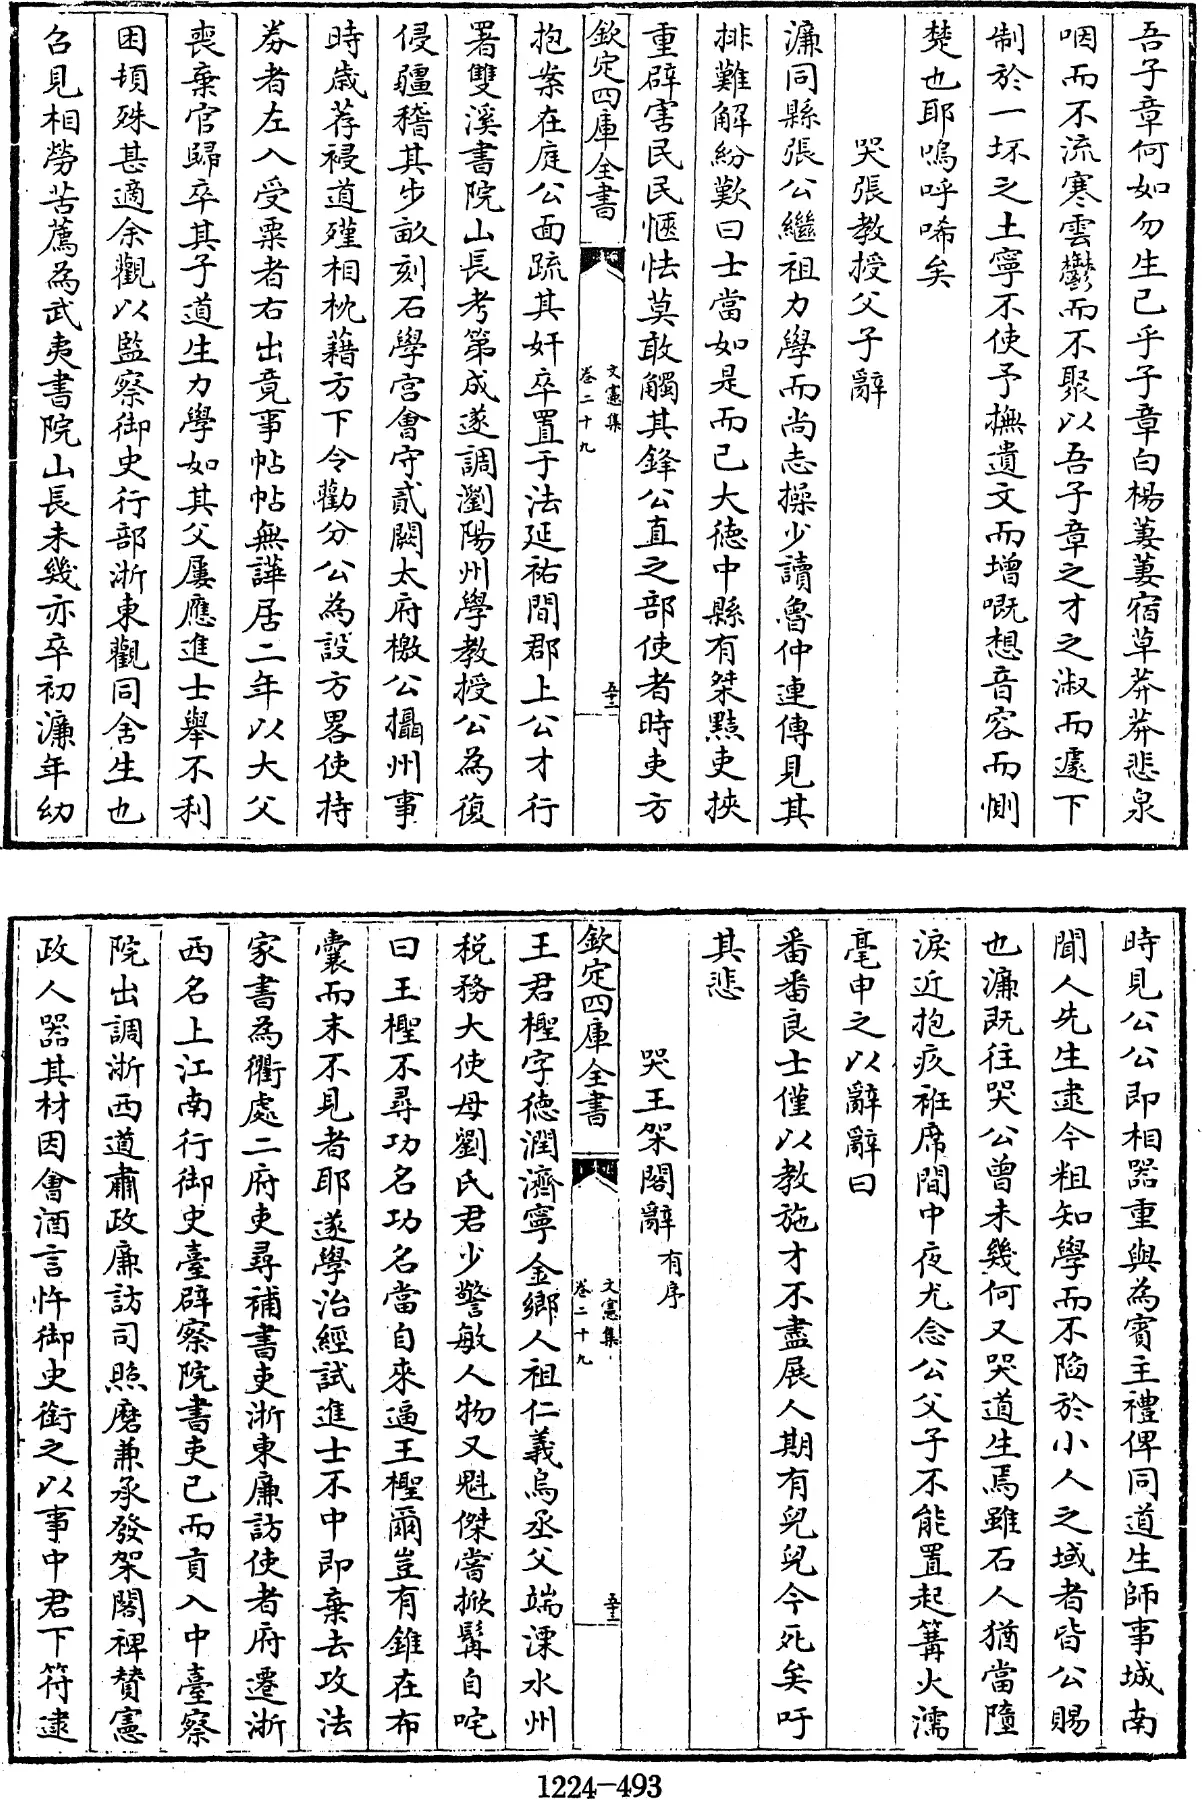 吾子章何如勿生已乎子章白楊萋萋宿草莽莽悲泉
咽而不流寒雲鬱而不聚以吾子章之才之淑而遽下
制於一抔之土寧不使予撫遺文而增嘅想音容而惻
楚也耶嗚呼唏矣
哭張教授父子辭
濂同縣張公繼祖力學而尚志操少讀魯仲連傳見其
排難解紛歎曰士當如是而已大徳中縣有桀黠吏挾
重辟害民民愜怯莫敢觸其鋒公直之部使者時吏方
欽定四庫全書
文憲集
卷二十九
五十二
抱案在庭公面䟽其奸卒置于法延祐間郡上公才行
署雙溪書院山長考第成遂調瀏陽州學教授公為復
侵疆稽其步畝刻石學宫會守貳闕太府檄公攝州事
時歲荐祲道殣相枕藉方下令勸分公為設方畧使持
券者左入受粟者右出竟事帖帖無譁居二年以大父
喪棄官歸卒其子道生力學如其父屢應進士舉不利
困頓殊甚適余觀以監察御史行部浙東觀同舍生也
召見相勞苦薦為武夷書院山長未幾亦卒初濂年幼
時見公公即相器重與為賓主禮俾同道生師事城南
聞人先生逮今粗知學而不陷於小人之域者皆公賜
也濂既往哭公曾未幾何又哭道生焉雖石人猶當墮
淚近抱疾袵席間中夜尤念公父子不能置起篝火濡
毫申之以辭辭曰
番番良士僅以教施才不盡展人期有兒兒今死矣吁
其悲
哭王架閣辭有序
欽定四庫全書
文憲集
卷二十九
五十三
王君檉字徳潤濟寧金鄉人祖仁義烏丞父端溧水州
税務大使母劉氏君少警敏人物又魁傑嘗掀髯自咤
曰王檉不尋功名功名當自來逼王檉爾豈有錐在布
囊而末不見者耶遂學治經試進士不中即棄去攻法
家書為衢處二府吏尋補書吏浙東廉訪使者府遷浙
西名上江南行御史臺辟察院書吏已而貢入中臺察
院出調浙西道肅政廉訪司照磨兼承發架閣裨賛憲
政人器其材因會酒言忤御史銜之以事中君下符逮
1224-493